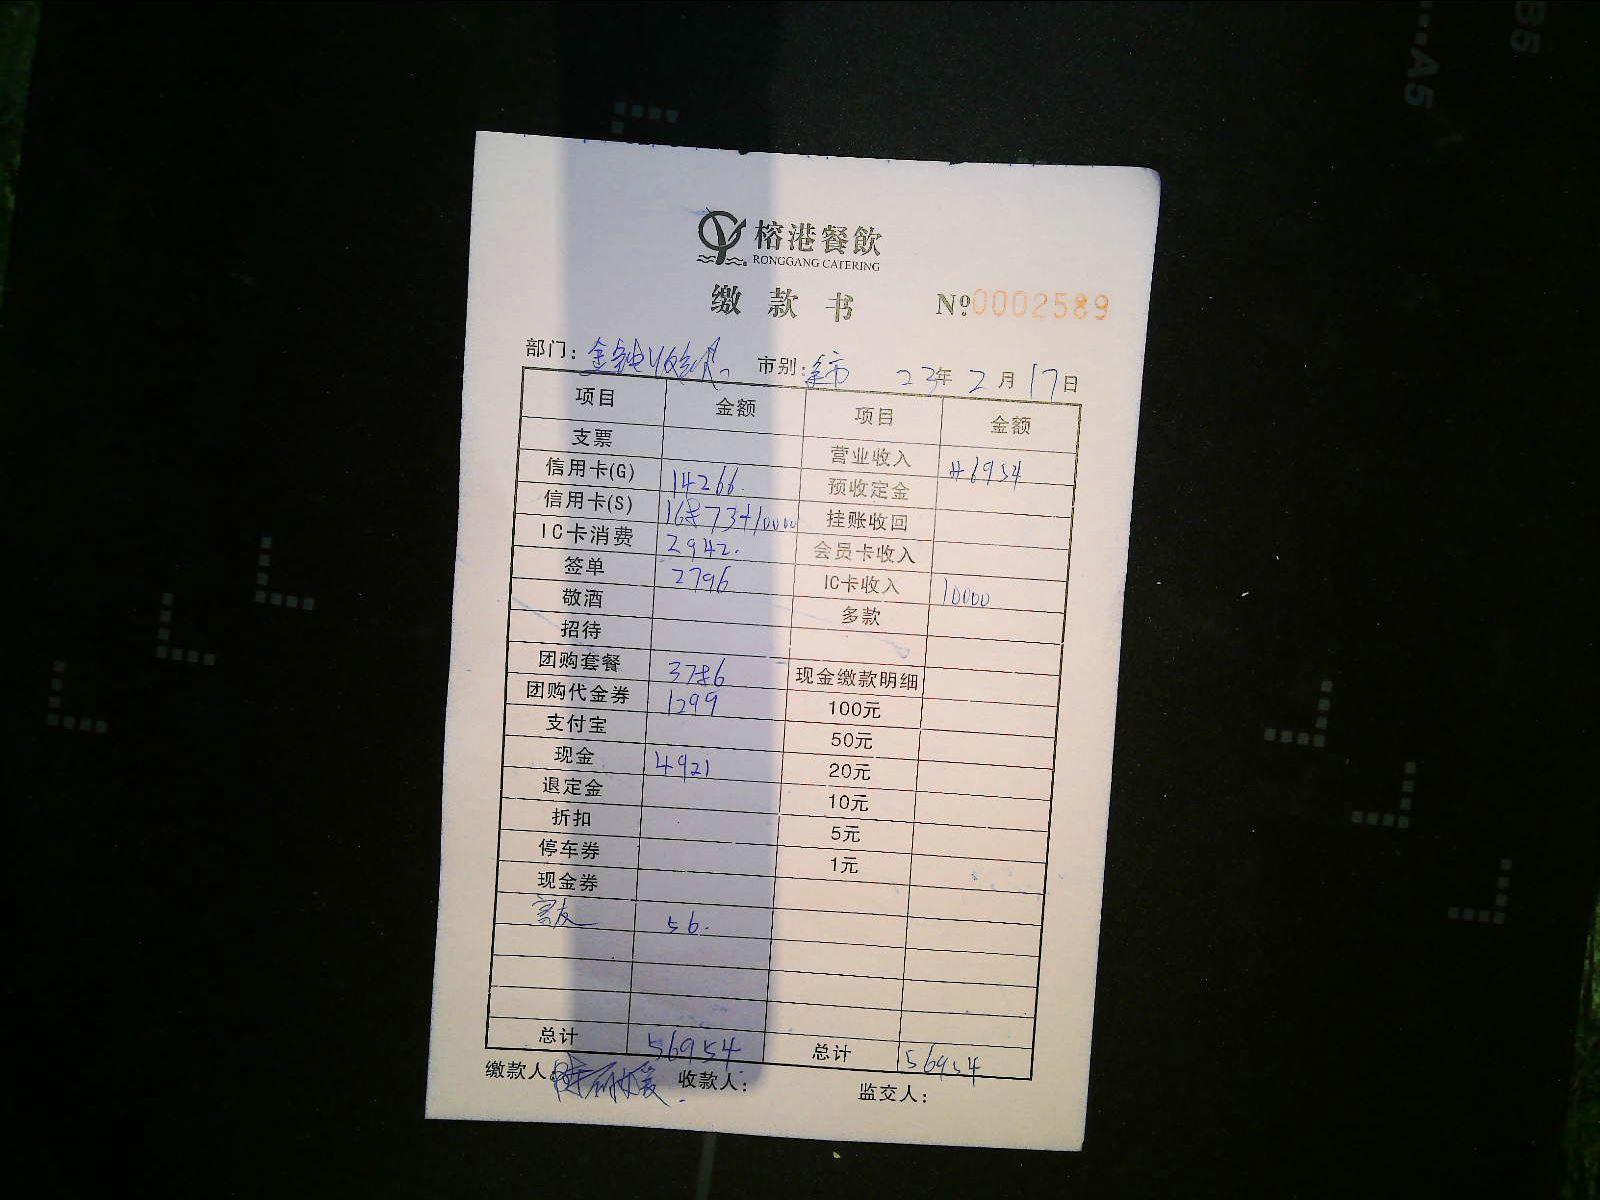 B5
A5
榕港餐飲
RONGGANG CATERING
缴款书 №0002589
部门: 金钻收银 市别: 全市 23年2月17日
项目 金额 项目 金额
支票 营业收入 46954
信用卡(G) 14266. 预收定金
信用卡(S) 16873+10000 挂账收回
IC卡消费 2942. 会员卡收入
签单 2796 IC卡收入 10000
敬酒 多款
招待
团购套餐 3786 现金缴款明细
团购代金券 1299 100元
支付宝 50元
现金 4921 20元
退定金 10元
折扣 5元
停车券 1元
现金券
56.
总计 56954 总计 56954
缴款人: 收款人: 监交人: